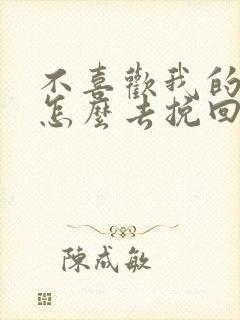 不喜歡我的
怎麼去挽回
陳成敏